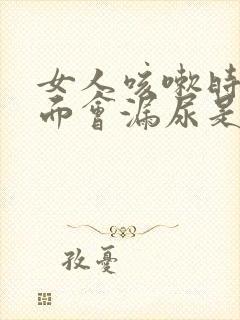 女人咳嗽时
而會漏尿是
孜憂